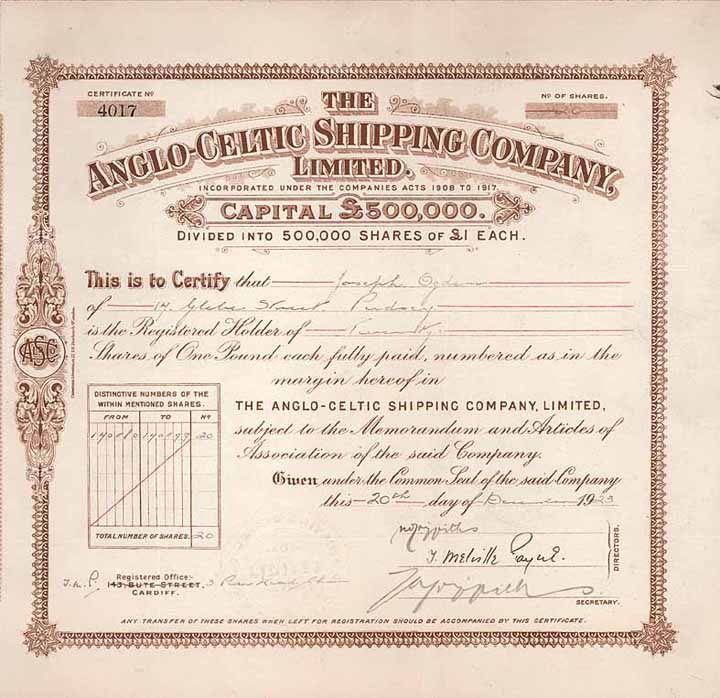 CERTIFICATE Nº
4017
Nº OF SHARES.
THE
ANGLO-CELTIC SHIPPING COMPANY,
LIMITED.
INCORPORATED UNDER THE COMPANIES ACTS 1908 TO 1917.
CAPITAL £500,000.
DIVIDED INTO 500,000 SHARES OF £1 EACH.
This is to Certify that Joseph Ogden
of 14 Glebe Street Pudsey
is the Registered Holder of Twenty
Shares of One Pound each fully paid, numbered as in the
margin hereof in
THE ANGLO-CELTIC SHIPPING COMPANY, LIMITED,
subject to the Memorandum and Articles of
Association of the said Company.
Given under the Common Seal of the said Company
this 20th day of December 1923
ASCo
DISTINCTIVE NUMBERS OF THE
WITHIN MENTIONED SHARES.
FROM TO Nº
20
TOTAL NUMBER OF SHARES. 20
T. Melville
DIRECTORS.
SECRETARY.
Registered Office:-
143, BUTE STREET,
CARDIFF.
ANY TRANSFER OF THESE SHARES WHEN LEFT FOR REGISTRATION SHOULD BE ACCOMPANIED BY THIS CERTIFICATE.